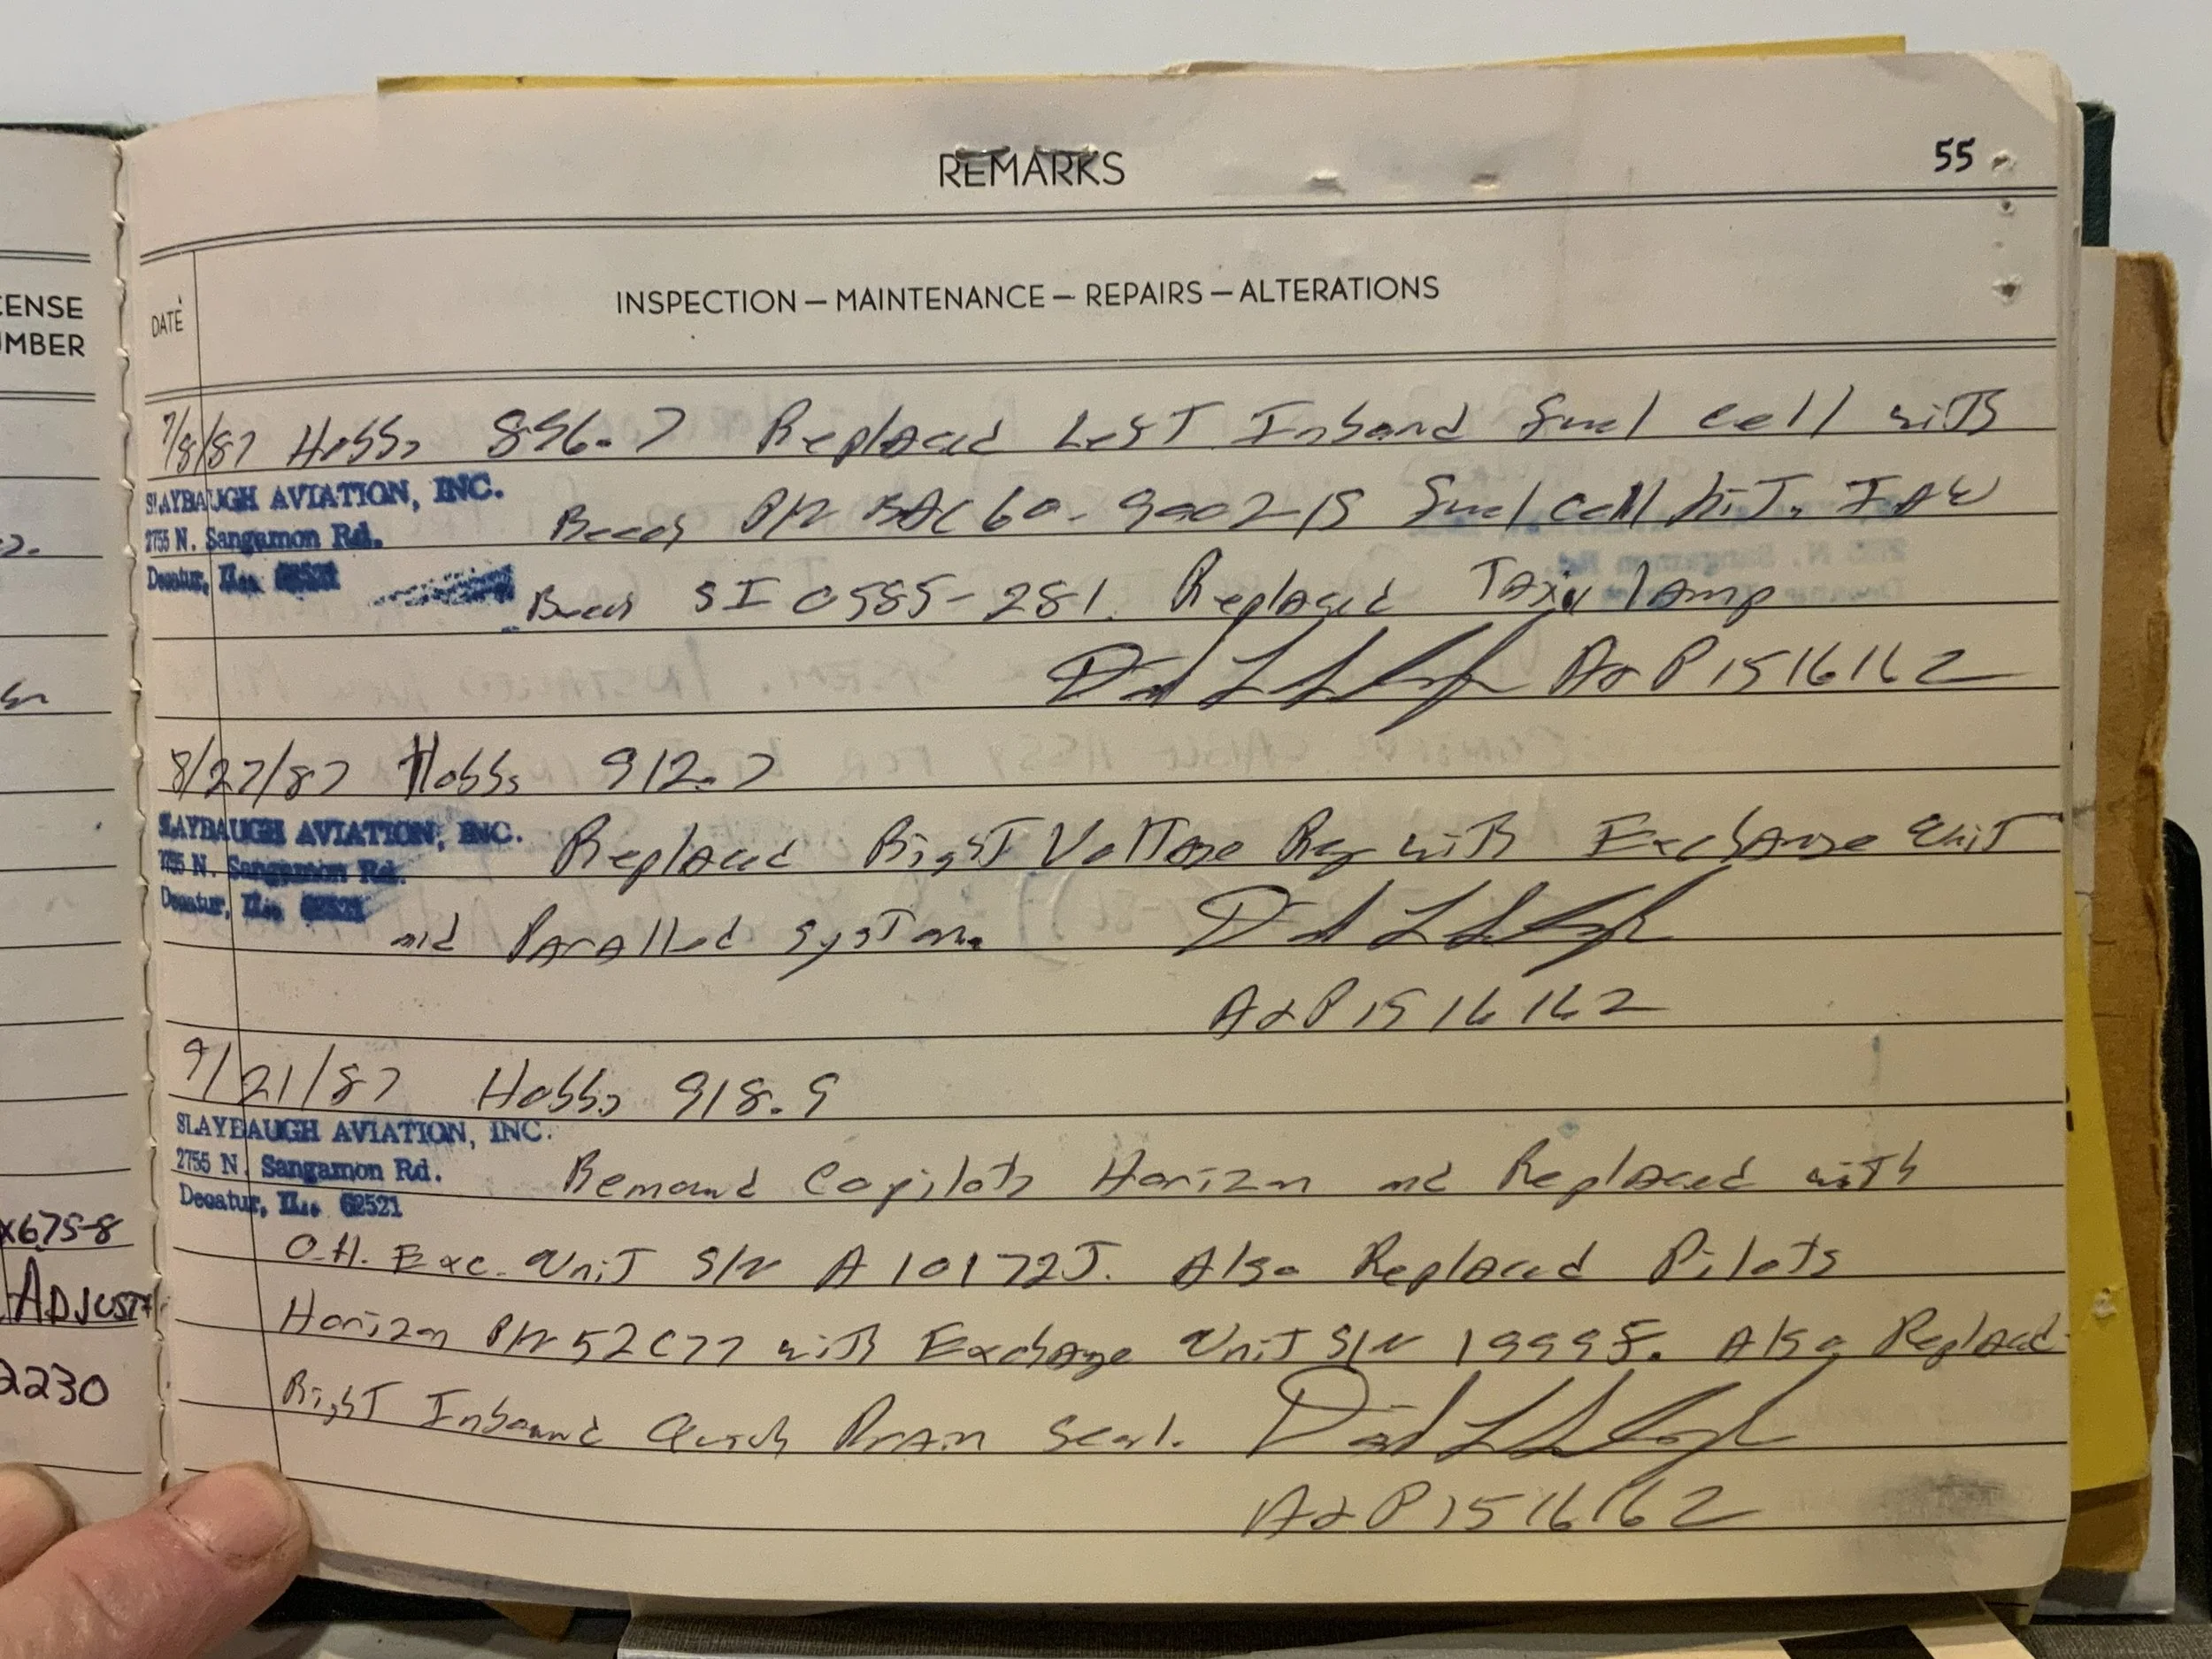 REMARKS
55
CENSE
UMBER
DATE
INSPECTION — MAINTENANCE — REPAIRS — ALTERATIONS
7/8/87 Hobbs 896.7 Replaced Left Inboard Fuel Cell with
SLAYBAUGH AVIATION, INC.
2755 N. Sangamon Rd.
Decatur, IL. 62521
Beech P/N 60-9002-15 Fuel Cell Kit. IAW
Beech SI 0585-281. Replaced Taxi lamp
A&P 1516162
8/27/87 Hobbs 912.7
SLAYBAUGH AVIATION, INC.
2755 N. Sangamon Rd.
Decatur, IL. 62521
Replaced Right Voltage Reg with Exchange Unit
and Paralled System.
A&P 1516162
9/21/87 Hobbs 918.9
SLAYBAUGH AVIATION, INC.
2755 N. Sangamon Rd.
Decatur, IL. 62521
Removed Copilots Horizon and Replaced with
O.H. Exc. Unit S/N A10172J. Also Replaced Pilots
Horizon P/N 52C77 with Exchange Unit S/N Also Replaced
Right Inboard Quick Drain Seal.
A&P 1516162
x675-8
ADJUST
2230